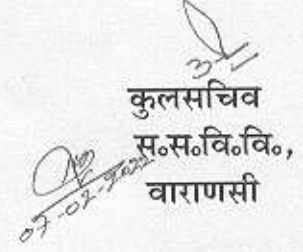 कुलसचिव
स०स०वि०वि०,
वाराणसी
07-02-2022